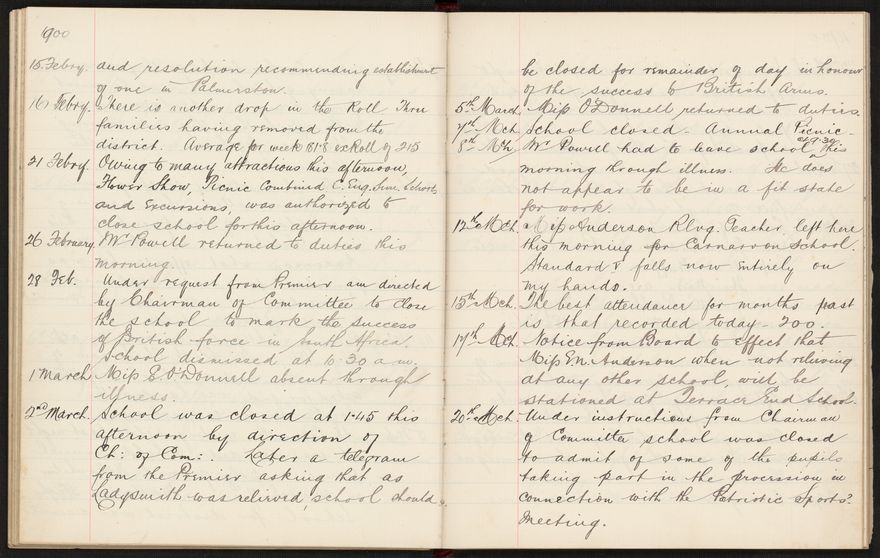 1900
15 Febry. and resolution recommending establishment
of one in Palmerston.
16 Febry. There is another drop in the Roll Three
families having removed from the
district. Average for week 181.8 ex Roll of 215
21 Febry. Owing to many attractions this afternoon,
Flower Show, Picnic Combined C. Eng. Sun. Schools
and Excursions, was authorized to
close school for this afternoon.
26 February Mr Powell returned to duties this
morning.
28 Feb. Under request from Premier am directed
by Chairman of Committee to close
the school to mark the success
of British force in South Africa.
School dismissed at 10.30 a.m.
1 March Miss E O'Donnell absent through
illness.
2nd March. School was closed at 1.45 this
afternoon by direction of
Ch: of Com: . Later a telegram
from the Premier asking that as
Ladysmith was relieved, school should
be closed for remainder of day in honour
of the success to British Arms.
5th March. Miss O'Donnell returned to duties.
7th Mch School closed. Annual Picnic.
8th Mch. Mr Powell had to leave school at 9.30 this
morning through illness. He does
not appear to be in a fit state
for work.
12th Mch. Miss Anderson Rlvg. Teacher, left here
this morning for Carnarvon School.
Standard V falls now entirely on
my hands.
15th Mch. The best attendance for months past
is that recorded today - 200.
17th Mch. Notice from Board to effect that
Miss E.N. Anderson when not relieving
at any other school, will be
stationed at Terrace End School.
20th Mch. Under instructions from Chairman
of Committee school was closed
to admit of some of the pupils
taking part in the procession in
connection with the Patriotic Sports?
Meeting.